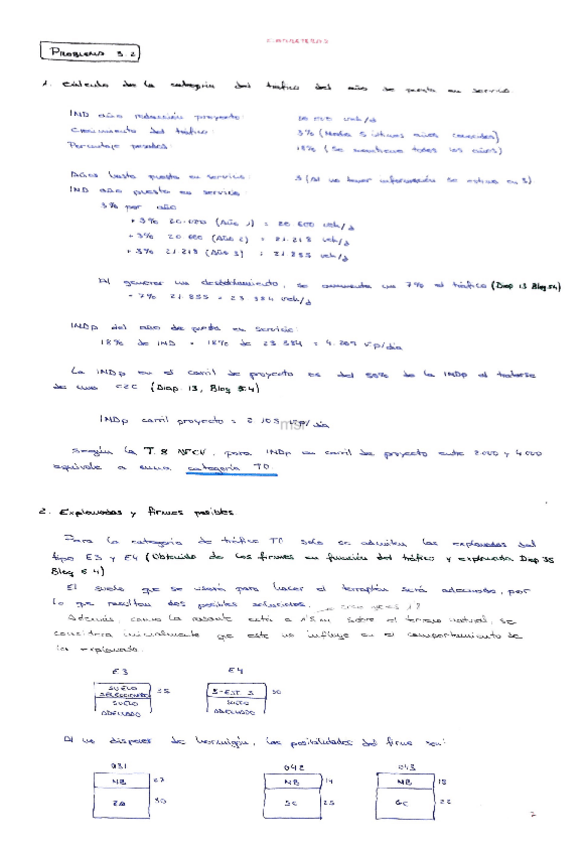 CARRETERAS
PROBLEMA 5.2
1. Cálculo de la categoría del tráfico del año de puesta en servicio.
IMD año redacción proyecto: 20 000 veh/d
Crecimiento del tráfico: 3% (Media 5 últimos años conocidos)
Porcentaje pesados: 18% (Se mantiene todos los años)
Años hasta puesta en servicio: 3 (Al no tener información se estima en 3)
IMD año puesta en servicio:
3% por año
+3% 20.000 (Año 1) = 20 600 veh/d
+3% 20 600 (Año 2) = 21.218 veh/d
+3% 21.218 (Año 3) = 21 855 veh/d
Al generar un desdoblamiento, se aumenta un 7% el tráfico (Diap 13 Bloq 5.4)
+7% 21.855 = 23 384 veh/d
IMDp del año de puesta en servicio:
18% de IMD = 18% de 23 384 = 4.209 vp/día
La IMDp en el carril de proyecto es del 50% de la IMDp al tratarse
de una C2C (Diap. 13, Bloq 5.4)
IMDp carril proyecto = 2 105 vp/día
Según la T. 8 NFCV, para IMDp en carril de proyecto entre 2000 y 4000
equivale a una categoría T0
2. Explanadas y firmes posibles
Para la categoría de tráfico T0 solo se admiten las explanadas del
tipo E3 y E4 (Obtenido de los firmes en función del tráfico y explanada Diap 35
Bloq 5.4)
El suelo que se usará para hacer el terraplén será adecuado, por
lo que resultan dos posibles soluciones.
Además, como la rasante está a 1'5 m sobre el terreno natural, se
considera inicialmente que este no influye en el comportamiento de
la explanada.
E3 E4
SUELO SELECCIONADO S-EST. 3 30
SUELO ADECUADO SUELO ADECUADO
Al no disponer de hormigón, las posibilidades del firme son:
031 042 043
MB MB MB
ZA SC 25 GC 22
2